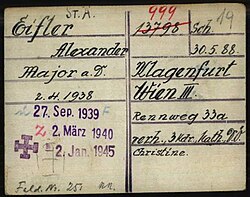 St. A. 999 19
Eifler 13798 Sch.
Alexander 30.5.88
Major a.D. Klagenfurt
2.4.1938 Wien III.
27. Sep. 1939 Rennweg 33a
Z 2. März 1940 verh., 3 Kdr., Kath., D.
2. Jan. 1945 Christine.
Feld. Nr. 251